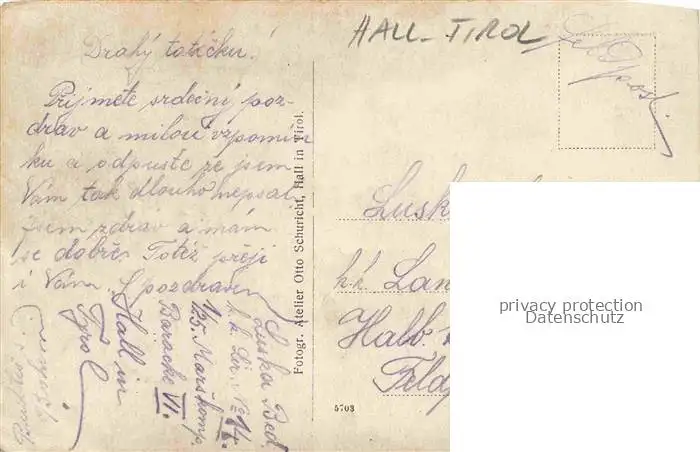 HALL - TIROL
Feldpost
Drahý tatíčku!
Přijměte srdečný poz-
drav a milou vzpomín
ku a odpuste že jsem
Vám tak dlouho nepsal
jsem zdráv a mám
se dobře. Totéž přeji
i Vám. S pozdravem
Luska Bed.
k.k. Lir. No 14
1/125. Marškomp.
Baracke VI.
Hall in
Tyrol
Fotogr. Atelier Otto Schuricht, Hall in Tirol.
5703
Lusk
k.k. Lan
Halb.
Feldp
privacy protection
Datenschutz